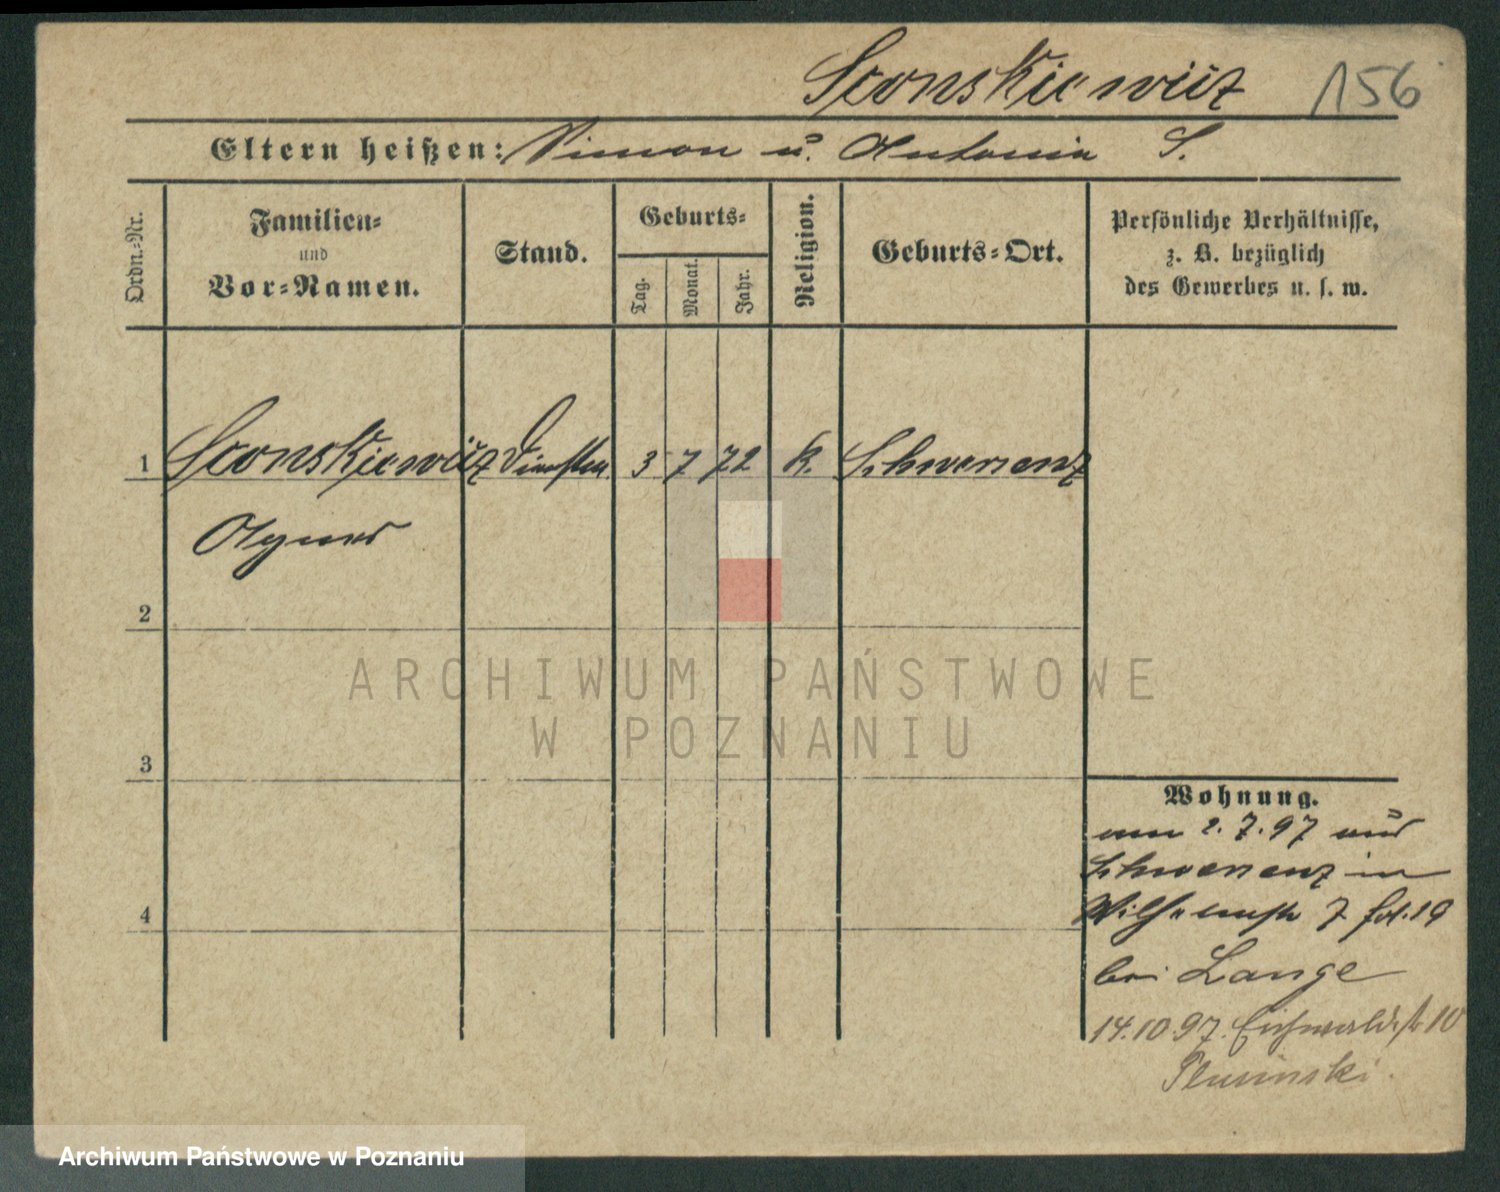 Sconskiewicz 156
Eltern heißen: Simon u. Antonia S.
Ordn.-Nr.
Familien-
und
Vor-Namen.
Stand.
Geburts-
Tag.
Monat.
Jahr.
Religion.
Geburts-Ort.
Persönliche Verhältnisse,
z. B. bezüglich
des Gewerbes u. s. w.
1 Sconskiewicz 3 7 72 k. Schwersenz
Agnes
2
3
4
Wohnung.
am 2.7.97 aus
Schwersenz in
Wilhelmstr 7 19
bei Lange
14.10.97. Eichwaldstr 10
ARCHIWUM PAŃSTWOWE
W POZNANIU
Archiwum Państwowe w Poznaniu